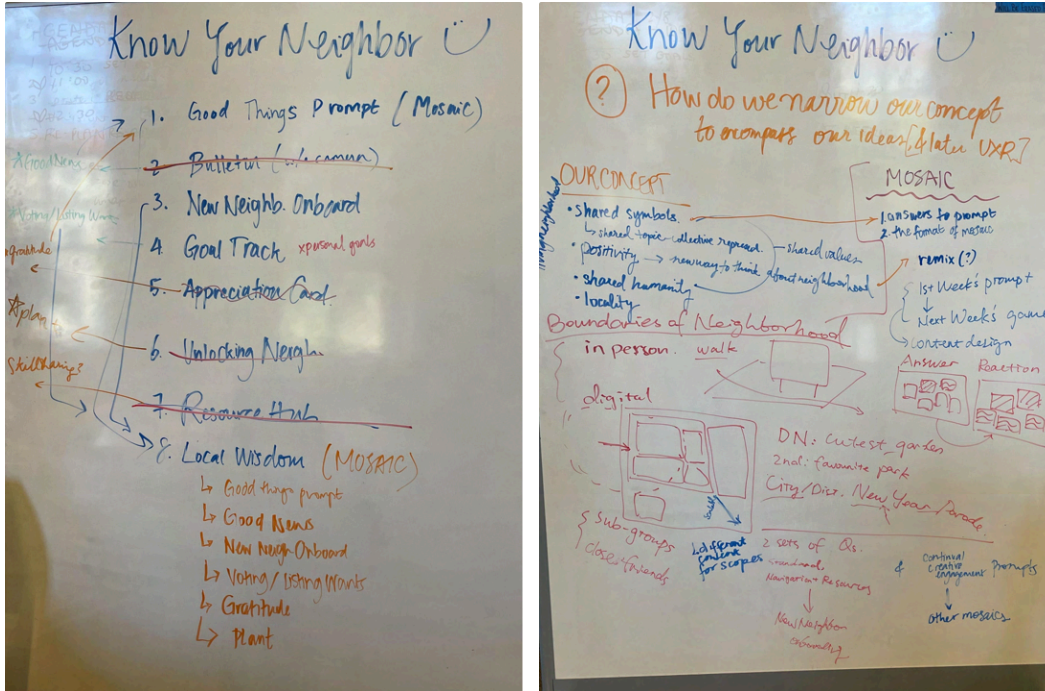 Know Your Neighbor
1. Good Things Prompt (Mosaic)
2. Bulletin
3. New Neighb. Onboard
4. Goal Track xpersonal goals
5. Appreciation Card
6. Unlocking Neigh.
7. Resource Hub
8. Local Wisdom (MOSAIC)
Good things prompt
Good News
New Neigh Onboard
Voting/Listing Wants
Gratitude
Plant
Good News
Voting/Listing Wants
gratitude
plant
Skillsharing?
Know Your Neighbor
? How do we narrow our concept
to encompass our ideas [& later UXR]
OUR CONCEPT
• shared symbols.
shared topic - collective represent.
• positivity → new way to think about neighbourhood
shared values
• shared humanity
• locality
MOSAIC
1. answers to prompt
2. the format of mosaic
remix (?)
1st Week's prompt
Next Week's game
content design
Boundaries of Neighborhood
in person. walk
digital
Answer
Reaction
DN: cutest garden
2nd: favourite park
City/Dist. New Year Parade
sub-groups
close friends
different
content
for scopes
2 sets of Qs.
Navigation + Resources
New Neighbor
&
continual
creative
engagement prompts
other mosaics